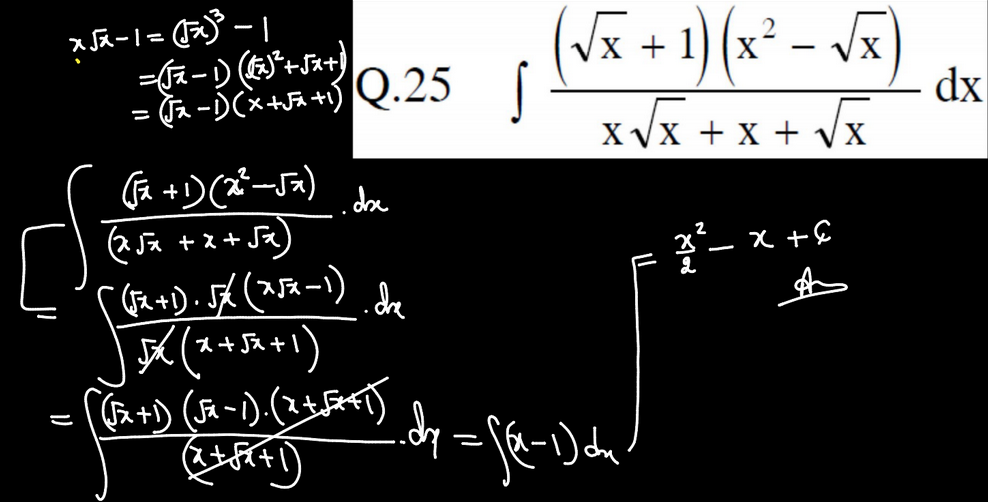 x√x − 1 = (√x)³ − 1
= (√x − 1) ((√x)² + √x + 1)
= (√x − 1) (x + √x + 1)
Q.25 ∫ (√x + 1)(x² − √x) / (x√x + x + √x) dx
∫ (√x + 1)(x² − √x) / (x√x + x + √x) . dx
= ∫ (√x + 1) . √x (x√x − 1) / √x (x + √x + 1) . dx
= ∫ (√x + 1) (√x − 1) . (x + √x + 1) / (x + √x + 1) . dx = ∫ (x − 1) dx
= x²/2 − x + C
A